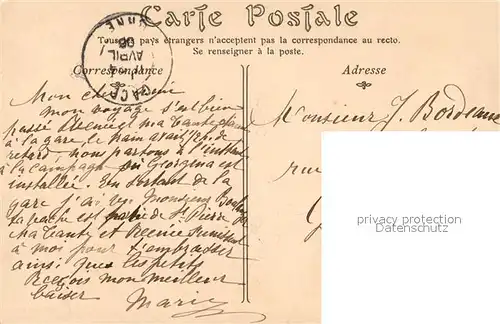 Carte Postale
Tous les pays étrangers n'acceptent pas la correspondance au recto.
Se renseigner à la poste.
Correspondance
Adresse
GACÉ
AVRIL
06
ORNE
Mon cher
mon voyage s'est bien
passé ma tante
à la gare, le train avait
retard, nous partons à l'instant
à la campagne où Georgina est
installée. En sortant de la
gare j'ai vu Monsieur
St Pierre
ma tante et
à moi pour t'embrasser
ainsi que les petits
Reçois mon meilleur
baiser
Marie
Monsieur J. Bordeaux
rue
privacy protection
watermark
privacy protection
watermark